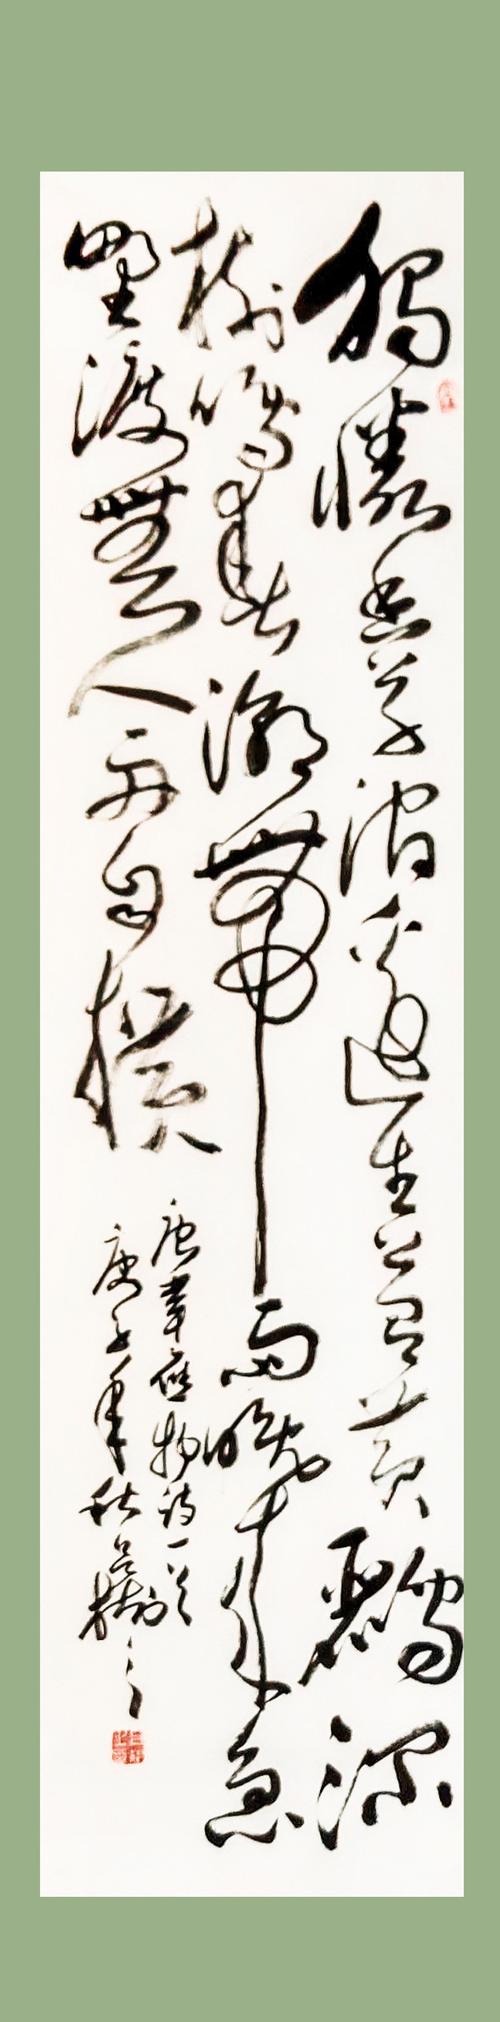 獨憐幽草澗邊生上有黃鸝深
樹鳴春潮帶雨晚來急
野渡無人舟自橫
唐韋應物詩一首
庚子年秋